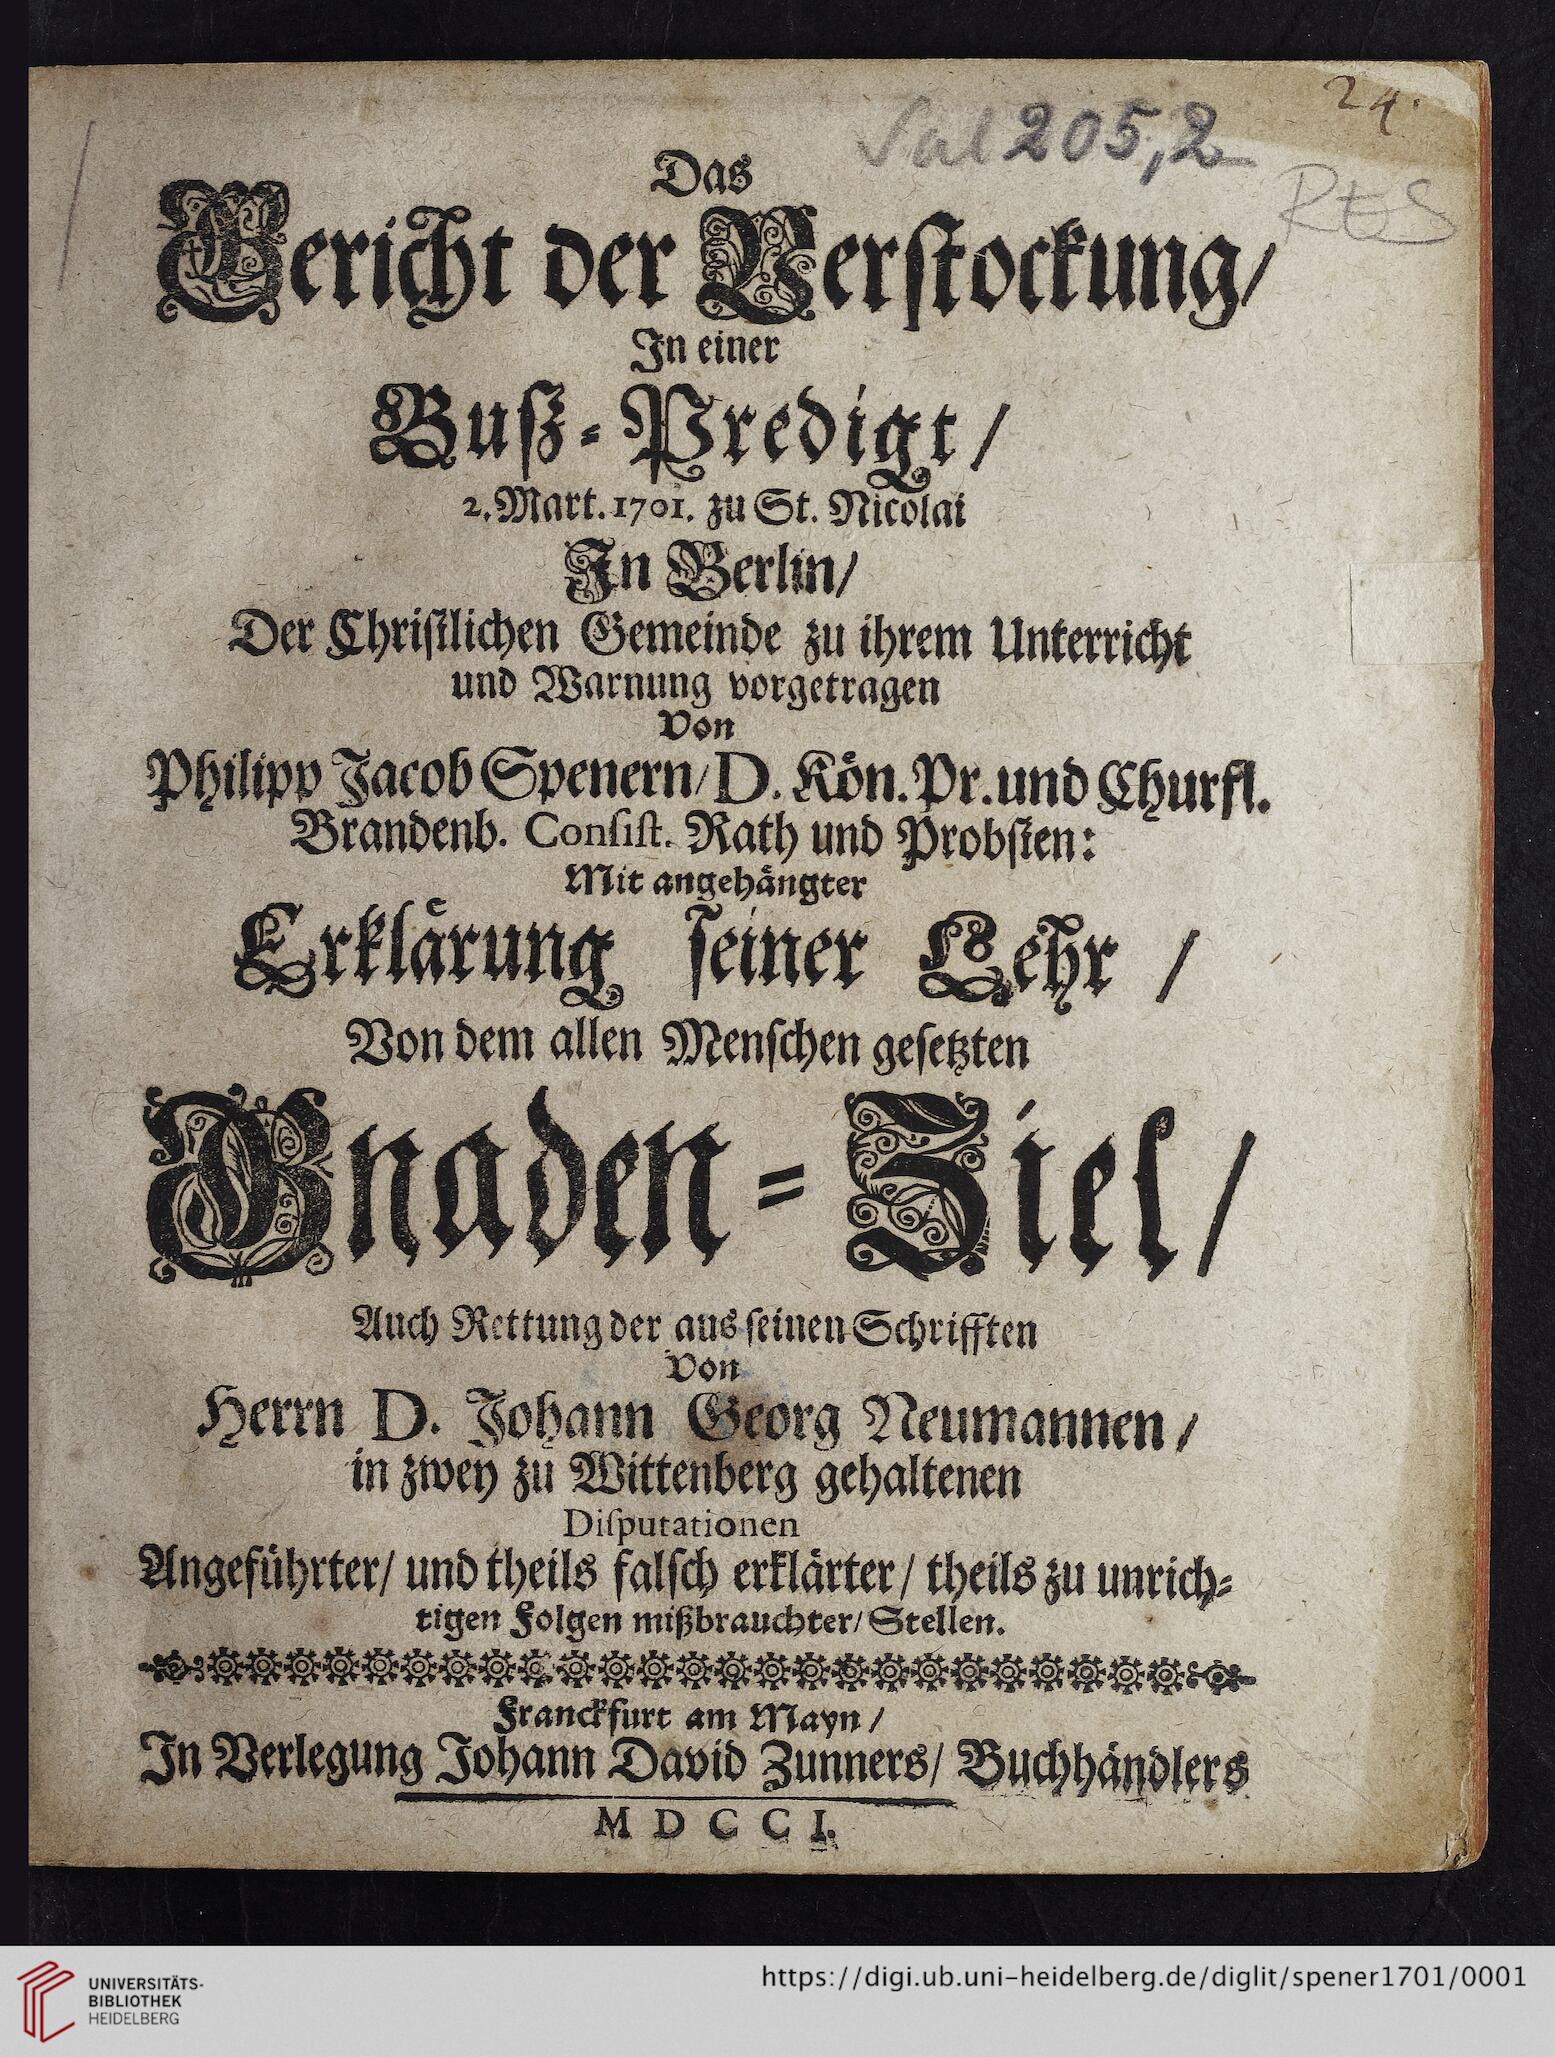 24.
Sal 205,2
RES
Das
Gericht der Verstockung/
In einer
Buß-Predigt/
2. Mart. 1701. zu St. Nicolai
In Berlin/
Der Christlichen Gemeinde zu ihrem Unterricht
und Warnung vorgetragen
Von
Philipp Jacob Spenern/ D. Kön. Pr. und Churfl.
Brandenb. Consist. Rath und Probsten:
Mit angehängter
Erklärung seiner Lehr /
Von dem allen Menschen gesetzten
Gnaden-Ziel/
Auch Rettung der aus seinen Schrifften
Von
Herrn D. Johann Georg Neumannen /
in zwey zu Wittenberg gehaltenen
Disputationen
Angeführter/ und theils falsch erklärter / theils zu unrich-
tigen Folgen mißbrauchter/ Stellen.
Franckfurt am Mayn /
In Verlegung Johann David Zunners/ Buchhändlers
MDCCI.
UNIVERSITÄTS-
BIBLIOTHEK
HEIDELBERG
https://digi.ub.uni-heidelberg.de/diglit/spener1701/0001